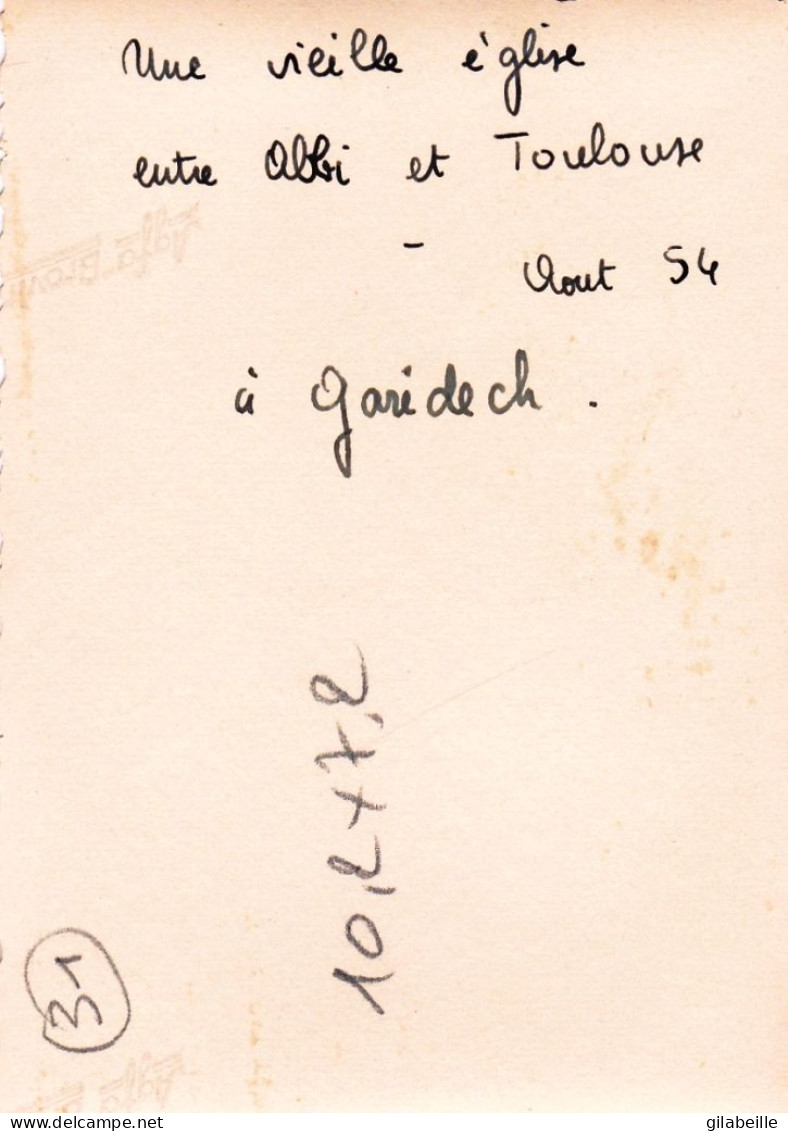 Une vieille église
entre Albi et Toulouse
- Aout 54
à Garidech.
10,2 x 7,2
31
Agfa
Agfa
delcampe.net
gilabeille